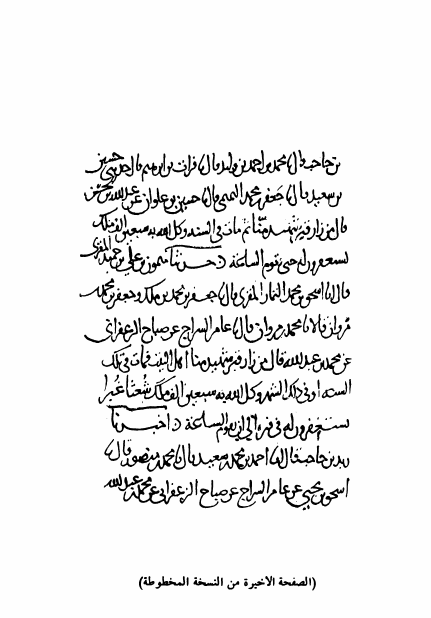 بن حاجب قال محمد بن احمد بن وليد قال فرات بن ابرهيم قال حدثني حسين
بن سعيد قال جعفر بن محمد قال حسين بن علوان عن عبد الله بن
قال من زار قبر شهيد منا ثم مات في السنة وكل الله به سبعين الف ملك
يستغفرون له حتى تقوم الساعة حدثنا ميمون بن علي بن حميد المقرى
قال اسحق بن محمد التمار المقرى قال جعفر بن محمد بن ملك وجعفر بن محمد
مروان قالا محمد بن مروان قال عامر السراج عن صباح الزعفراني
عن محمد بن عبد الله قال من زار قبر شهيد منا اهل البيت فمات في تلك
السنة او في ذلك الشهر وكل الله به سبعين الف ملك شعثا غبرا
يستغفرون له في قبره الى ان يوم الساعة اخبرنا
زيد بن حاجب قال احمد بن محمد سعيد قال محمد بن منصور قال
اسحق بن يحيى عن عامر السراج عن صباح الزعفراني عن محمد بن عبد الله
(الصفحة الأخيرة من النسخة المخطوطة)